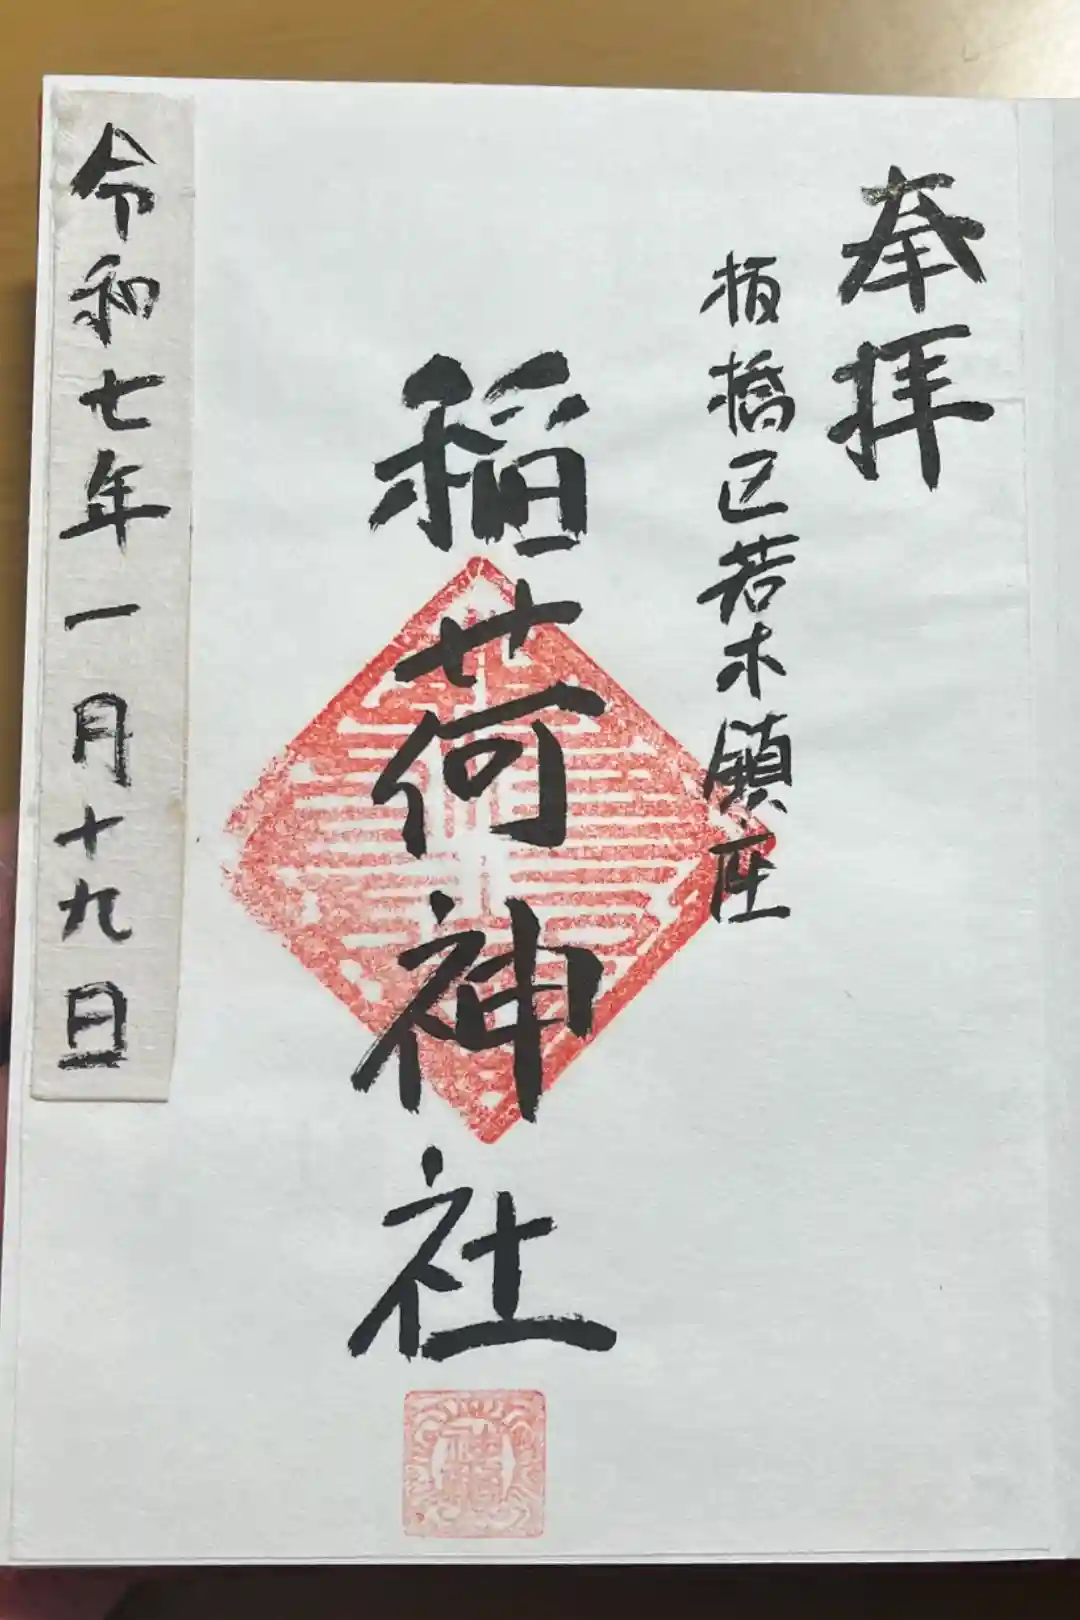 奉拝
板橋区若木鎮座
稲荷神社
令和七年一月十九日